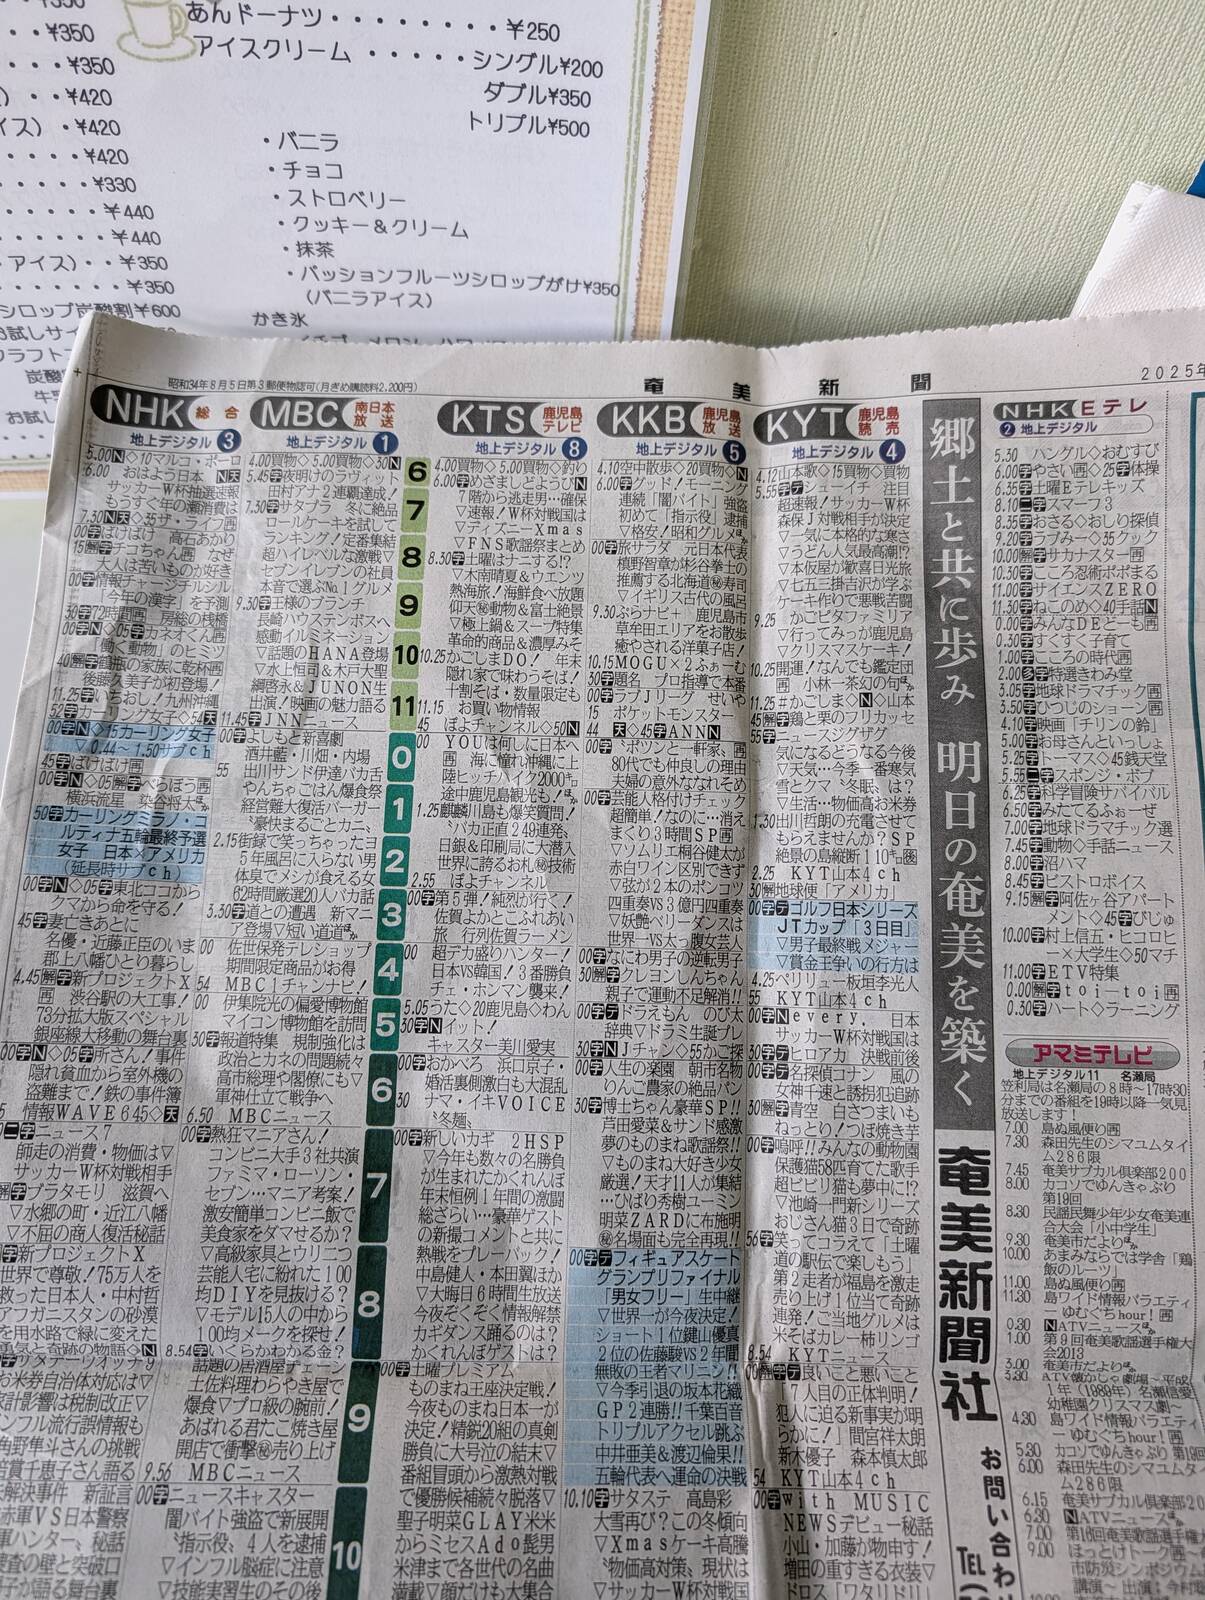 ¥350
¥350
¥350
・・¥420
イス)・¥420
・・・・¥420
・・・・・¥330
・・・・・・¥440
・・・・・・¥440
・アイス)・・¥350
・・・・・・・¥350
シロップ炭酸割¥600
お試しサイ
クラフト
炭酸
牛乳
お試し
あんドーナツ・・・・・・・・¥250
アイスクリーム・・・・・シングル¥200
ダブル¥350
トリプル¥500
・バニラ
・チョコ
・ストロベリー
・クッキー&クリーム
・抹茶
・パッションフルーツシロップがけ¥350
(バニラアイス)
かき氷
昭和34年8月5日第3郵便物認可(月ぎめ購読料2,200円)
奄美新聞
2025年
NHK総合
地上デジタル3
5.00N◇10マルコ・ポーロ
6.00 おはよう日本 N天
サッカーW杯抽選速報
もうすぐ年の瀬消費は
7.30N天◇35ザ・ライフ再
00字ばけばけ 高石あかり
15解字チコちゃん再 なぜ
大人は苦いものが好き
00字情報チャージルシル
「今年の漢字」を予測
30字72時間再 房総の桟橋
00字N◇05字カネオくん再
働く動物」のヒミツ
40解字鶴瓶の家族に乾杯再
後藤久美子が初登場!
11.25字いちおし!九州沖縄
52字カーリング女子◇54天
00字N◇15カーリング女子
▽0.44~1.50サブch
45字ばけばけ再
00字N◇05解字べらぼう再
横浜流星 染谷将太ほか
50字カーリングミラノ・コ
ルティナ五輪最終予選
女子 日本×アメリカ
(延長時サブch)
00字N◇05字東北ココから
クマから命を守る!
45字妻亡きあとに
名優・近藤正臣のいま
郡上八幡ひとり暮らし
4.45解字新プロジェクトX
再 渋谷駅の大工事!
73分拡大版スペシャル
銀座線大移動の舞台裏
00字N◇05字所さん!事件
隠れ貧血から室外機の
盗難まで!鉄の事件簿
情報WAVE645◇天
二字ニュース7
師走の消費・物価は▽
サッカーW杯対戦相手
解字ブラタモリ 滋賀へ
▽水郷の町・近江八幡
▽不屈の商人復活秘話
字新プロジェクトX
世界で尊敬!75万人を
救った日本人・中村哲
アフガニスタンの砂漠
を用水路で緑に変えた
勇気と奇跡の物語◇N
字サタデーウオッチ9
お米券自治体対応は▽
家計影響は税制改正▽
インフル流行誤情報も
角野隼斗さんの挑戦
倍賞千恵子さん語る
未解決事件 新証言
赤軍VS日本警察
MBC南日本放送
地上デジタル1
4.00買物◇5.00買物◇30N
5.45字夜明けのラヴィット
田村アナ2連覇達成!
7.30字サタプラ 冬に絶品
ロールケーキを試して
ランキング!定番集結
超ハイレベルな激戦▽
セブンイレブンの社員
本音で選ぶNo.1グルメ
9.30字王様のブランチ
長崎ハウステンボスへ
感動イルミネーション
▽話題のHANA登場
▽水上恒司&木戸大聖
綱啓永&JUNON生
出演!映画の魅力語る
11.45字JNNニュース
00字よしもと新喜劇
酒井藍・川畑・内場
55 出川サンド伊達バカ舌
やんちゃごはん爆食祭
経営難大復活バーガー
豪快まるごとカニ
2.15街録で笑っちゃったヨ
5年風呂に入らない男
体臭でメシが食える女
62時間厳選20人バカ話
3.30字道との遭遇 新マニ
ア登場▽短い道道ほか
00 佐世保発テレショップ
期間限定商品がお得
54 MBC1チャンナビ!
00 伊集院光の偏愛博物館
マイコン博物館を訪問
30字報道特集 規制強化は
政治とカネの問題続々
高市総理や閣僚にも▽
軍神仕立て戦争へ
6.50 MBCニュース
00字熱狂マニアさん!
コンビニ大手3社共演
ファミマ・ローソン・
セブン…マニア考案!
激安簡単コンビニ飯で
美食家をダマせるか?
▽高級家具とウリニつ
芸能人宅に紛れた100
均DIYを見抜ける?
▽モデル15人の中から
100均メークを探せ!
8.54字いくらかわかる金?
話題の居酒屋チェーン
土佐料理わらやき屋で
爆食▽プロ級の腕前!
あばれる君たこ焼き屋
開店で衝撃秘売り上げ
9.56 MBCニュース
00字ニュースキャスター
闇バイト強盗で新展開
〝指示役〟4人を逮捕
▽インフル脳症に注意
▽技能実習生のその後
6
7
8
9
10
11
0
1
2
3
4
5
6
7
8
9
10
KTS鹿児島テレビ
地上デジタル8
4.00買物◇5.00買物◇釣り
6.00字めざましどようびN
7階から逃走男…確保
▽速報!W杯対戦国は
▽ディズニーXmas
▽FNS歌謡祭まとめ
8.30字土曜はナニする!?
▽木南晴夏&ウエンツ
熱海旅!海鮮食べ放題
仰天秘動物&富士絶景
▽極上鍋&スープ特集
革命的商品&濃厚みそ
10.25かごしまDO! 年末
隠れ家で味わうそば!
十割そば・数量限定も
11.15 お買い物情報
45 ぽよチャンネル◇50N
00 YOUは何しに日本へ
再 海に憧れ沖縄に上
陸ヒッチハイク2000キロ
途中鹿児島観光も!ほか
1.25麒麟川島も爆笑質問!
〝バカ正直249連発〟
日銀&印刷局に大潜入
世界に誇るお札秘技術
2.55 ぽよチャンネル
00字第5弾!純烈が行く!
佐賀よかとこふれあい
旅 行列佐賀ラーメン
00 超デカ盛りハンター!
日本VS韓国!3番勝負
チェ・ホンマン襲来!
5.05うた◇20鹿児島◇わん
30字Nイット!
キャスター美川愛実
00字おかべろ 浜口京子・
婚活裏側激白も大混乱
30 ナマ・イキVOICE
〝冬麺〟
00字新しいカギ 2HSP
▽今年も数々の名勝負
が生まれたかくれんぼ
年末恒例1年間の激闘
総ざらい…豪華ゲスト
の新撮コメントと共に
熱戦をプレーバック!
中島健人・本田翼ほか
▽大晦日6時間生放送
今夜ぞくぞく情報解禁
カギダンス踊るのは?
かくれんぼゲストは?
00字土曜プレミアム
ものまね王座決定戦!
今夜ものまね日本一が
決定!精鋭20組の真剣
勝負に大号泣の結末▽
番組冒頭から激熱対戦
で優勝候補続々脱落▽
聖子明菜GLAY米米
からミセスAdo髭男
米津まで各世代の名曲
満載▽顔だけも大集合
KKB鹿児島放送
地上デジタル5
4.10空中散歩◇20買物◇N
6.00字グッド!モーニング
連続「闇バイト」強盗
初めて「指示役」逮捕
▽格安!昭和グルメほか
00字旅サラダ 元日本代表
槙野智章が杉谷拳士の
推薦する北海道秘寿司
▽イギリス古代の風呂
9.30ぶらナビ+ 鹿児島市
草牟田エリアをお散歩
癒やされる洋菓子店!
10.15MOGU×2ふぁーむ
30字題名 プロ指導で本番
00字ラブJリーグ せいや
15 ポケットモンスター
44天◇45字ANNN
00 〝ポツンと一軒家〟再
80代でも仲良しの理由
夫婦の意外ななれそめ
00字芸能人格付けチェック
超簡単!なのに…消え
まくり3時間SP再
▽ソムリエ桐谷健太が
赤白ワイン区別できず
▽弦が2本のポンコツ
四重奏VS3億円四重奏
▽妖艶ベリーダンスは
世界一VS太っ腹女芸人
00字なにわ男子の逆転男子
30解字クレヨンしんちゃん
親子で運動不足解消!!
00字デドラえもん のび太
辞典▽ドラミ生誕プレ
30字NJチャン◇55かご探
00字人生の楽園 朝市名物
りんご農家の絶品パン
30字博士ちゃん豪華SP!!
芦田愛菜&サンド感激
夢のものまね歌謡祭!!
▽ものまね大好き少女
厳選!天才11人が集結
…ひばり秀樹ユーミン
明菜ZARDに布施明
秘名場面も完全再現!!
00字デフィギュアスケート
グランプリファイナル
「男女フリー」生中継
▽世界一が今夜決定!
ショート1位鍵山優真
2位の佐藤駿VS2年間
無敗の王者マリニン!!
▽今季引退の坂本花織
GP2連勝!!千葉百音
トリプルアクセル跳ぶ
中井亜美&渡辺倫果!!
五輪代表へ運命の決戦
10.10字サタステ 高島彩
大雪再び?この冬傾向
▽Xmasケーキ高騰
〝物価高対策〟現状は
▽サッカーW杯対戦国
KYT鹿児島読売
地上デジタル4
4.12山本歌◇15買物◇買物
5.55字デズーイチ 注目
超速報!サッカーW杯
森保J対戦相手が決定
一気に本格的な寒さ
▽うどん人気最高潮!?
▽本仮屋が歓喜日光旅
▽七五三掛吉沢が学ぶ
ケーキ作りで悪戦苦闘
9.25 かごピタファミリア
▽行ってみっが鹿児島
▽クリスマスケーキ!
10.25開運!なんでも鑑定団
再 小林一茶幻の句ほか
11.25天◇山本◇N◇山本
45解字鶏と栗のフリカッセ
55字ニュースジグザグ
気になるどうなる今後
▽天気…今季一番寒気
雪とクマ〝冬眠〟は?
▽生活…物価高お米券
1.30出川哲朗の充電させて
もらえませんか?SP
絶景の島縦断110キロ後
2.25 KYT山本4ch
30解字地球便「アメリカ」
00字デゴルフ日本シリーズ
JTカップ「3日目」
▽男子最終戦メジャー
▽賞金王争いの行方は
4.25ペリリュー板垣李光人
55 KYT山本4ch
00字Nevery. 日本
サッカーW杯対戦国は
30字デヒロアカ 決戦前後
00字デ名探偵コナン 風の
女神千速と誘拐犯追跡
30解字青空 白さつまいも
ねっとり!つぼ焼き芋
00字嗚呼!!みんなの動物園
保護猫58匹育てた歌手
超ビビリ猫も夢中に!?
▽池崎一門新シリーズ
おじさん猫3日で奇跡
56字笑ってコラえて「土曜
道の駅伝で楽しもう」
第2走者が福島を激走
売り上げ1位当て奇跡
連発!ご当地グルメは
米そばカレー柿リンゴ
8.54 KYTニュース
00解字デ良いこと悪いこと
7人目の正体判明!
犯人に迫る新事実が明
らかに! 間宮祥太朗
新木優子 森本慎太郎
54 KYT山本4ch
00字with MUSIC
NEWSデビュー秘話
小山・加藤が物申す!
増田の重すぎる衣装▽
ドロス「ワタリドリ」
郷土と共に歩み 明日の奄美を築く
奄美新聞社
お問い合わ
TEL
NHK Eテレ
2 地上デジタル
5.30 ハングル◇おむすび
6.00字やさい再◇25字体操
6.35字土曜Eテレキッズ
8.10二字スマーフ3
8.35字おさる◇おしり探偵
9.20字ラブみー◇35クック
10.00解字サカナスター再
10.30字こころ忍術ポポまる
11.00字サイエンスZERO
11.30字ねこのめ◇40手話N
0.00字みんなDEどーも再
0.30字すくすく子育て
1.00字こころの時代再
2.00多字特選きわみ堂
3.05字地球ドラマチック再
3.50字ひつじのショーン再
4.10字映画「チリンの鈴」
5.00字お母さんといっしょ
5.25字トーマス◇45銭天堂
5.55二字スポンジ・ボブ
6.25字科学冒険サバイバル
6.50字みたてるふぉーぜ
7.00字地球ドラマチック選
7.45字動物◇手話ニュース
8.00字沼ハマ
8.45字ビストロボイス
9.15解字阿佐ヶ谷アパート
メント◇45字びじゅ
10.00字村上信五・ヒコロヒ
ー×大学生◇50マチ
11.00字ETV特集
0.00解字toi-toi再
0.30字ハート◇ラーニング
アマミテレビ
地上デジタル11 名瀬局
笠利局は名瀬局の8時~17時30
分までの番組を19時以降一気見
放送します!
7.00 島ぬ風便り再
7.30 森田先生のシマユムタイ
ム286限
7.45 奄美サブカル倶楽部200
8.00 カコソでゆんきゃぶり
第19回
8.30 民謡民舞少年少女奄美連
合大会「小中学生」
9.30 奄美市だよりほか
10.00 あまみならでは学舎「鶏
飯のルーツ」
11.00 島ぬ風便り再
11.30 島ワイド情報バラエティ
ーゆむぐちhour!再
0.30 NATVニュースほか
1.00 第9回奄美歌謡選手権大
会2013
3.00 奄美市だよりほか
3.30 ATV懐かしゃ劇場~平成
1年(1989年)名瀬信愛
幼稚園クリスマス劇~
4.30 島ワイド情報バラエティ
ーゆむぐちhour!再
5.30 カコソでゆんきゃぶり 第19回
6.00 森田先生のシマユムタイ
ム286限
6.15 奄美サブカル倶楽部20
6.30 NATVニュースほか
7.00 第16回奄美歌謡選手権大
9.00 ほっとけトーク再~
市防災シンポジウム
講演~出演:今村